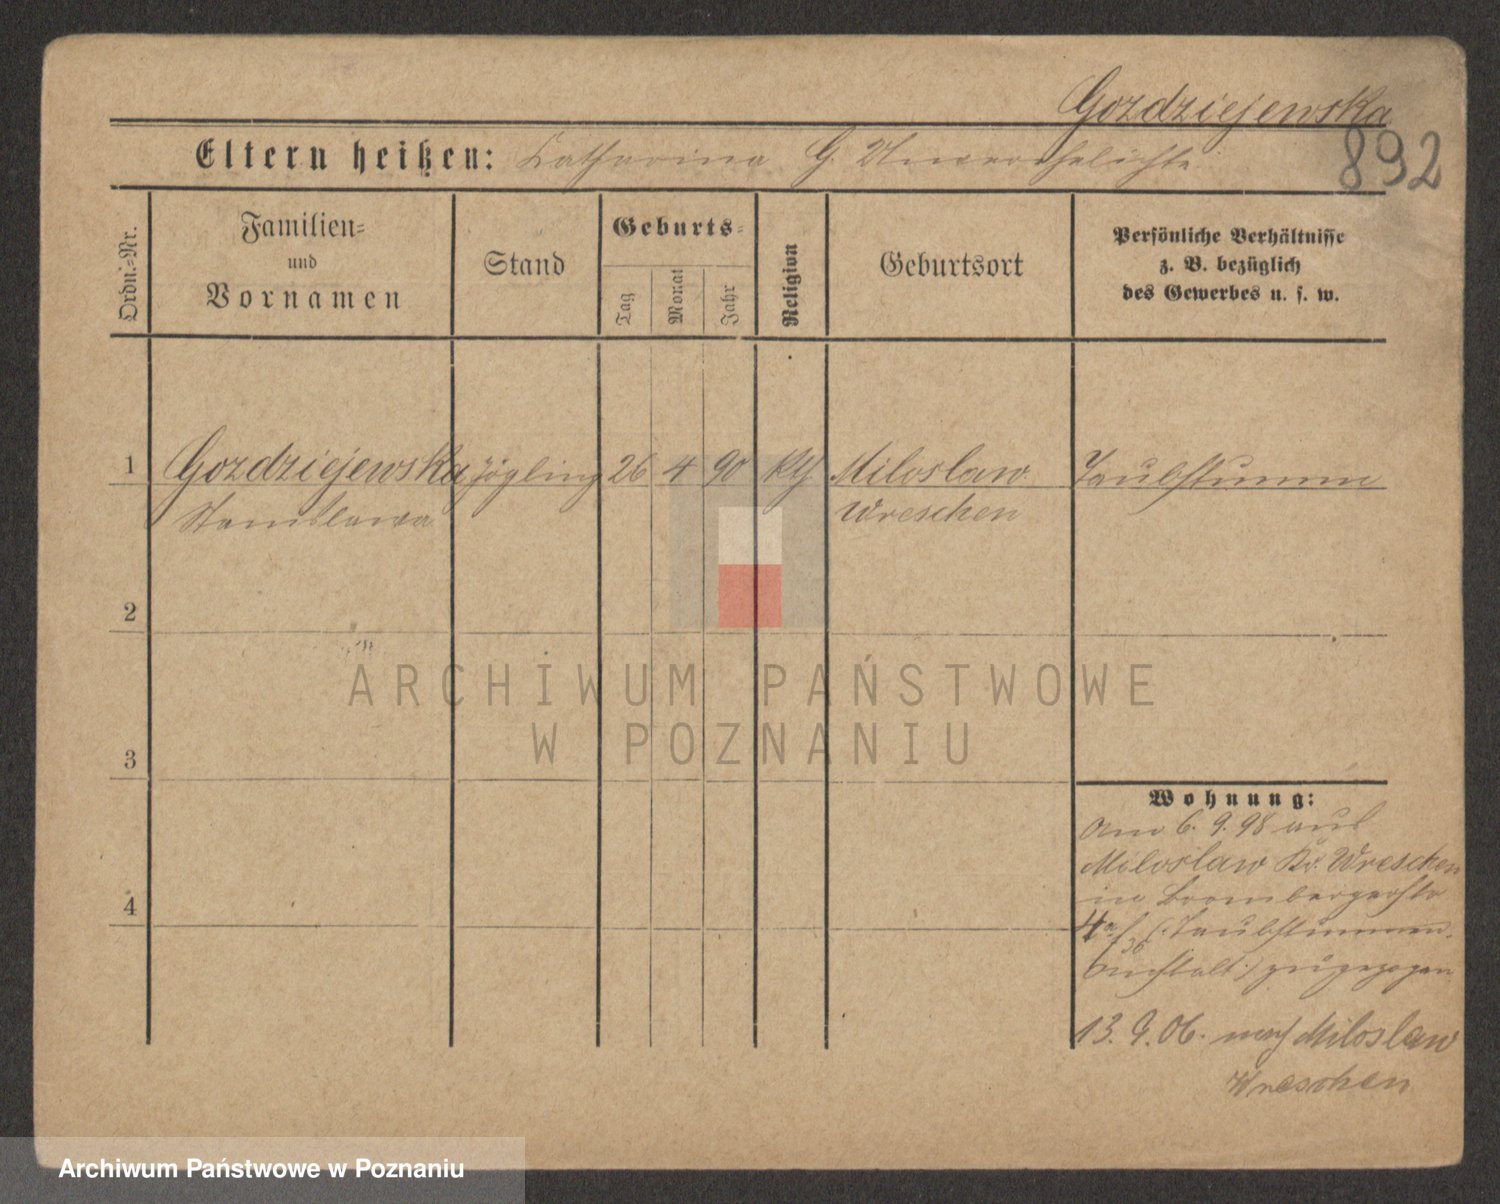 Gozdziejewska
892
Eltern heißen: Catharina G. Unverehelichte
Ordn.-Nr.
Familien-
und
Vornamen
Stand
Geburts-
Tag
Monat
Jahr
Religion
Geburtsort
Persönliche Verhältnisse
z. B. bezüglich
des Gewerbes u. s. w.
1 Gozdziejewska Zögling 26 4 90 kth Miloslaw Taubstumm
Stanislawa Wreschen
2
3
4
Wohnung:
Am 6. 9. 98 aus
Miloslaw Kr. Wreschen
in Brombergerstr
4a (: Taubstummen-
36
anstalt :) zugezogen
13. 9. 06. nach Miloslaw
Wreschen
ARCHIWUM PAŃSTWOWE
W POZNANIU
Archiwum Państwowe w Poznaniu